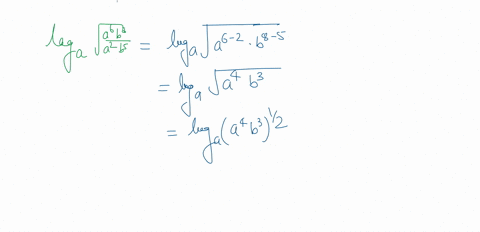 logₐ √(a⁶b⁸/a²b⁵) = logₐ √(a⁶⁻² · b⁸⁻⁵)
= logₐ √(a⁴ b³)
= logₐ (a⁴ b³)^1/2